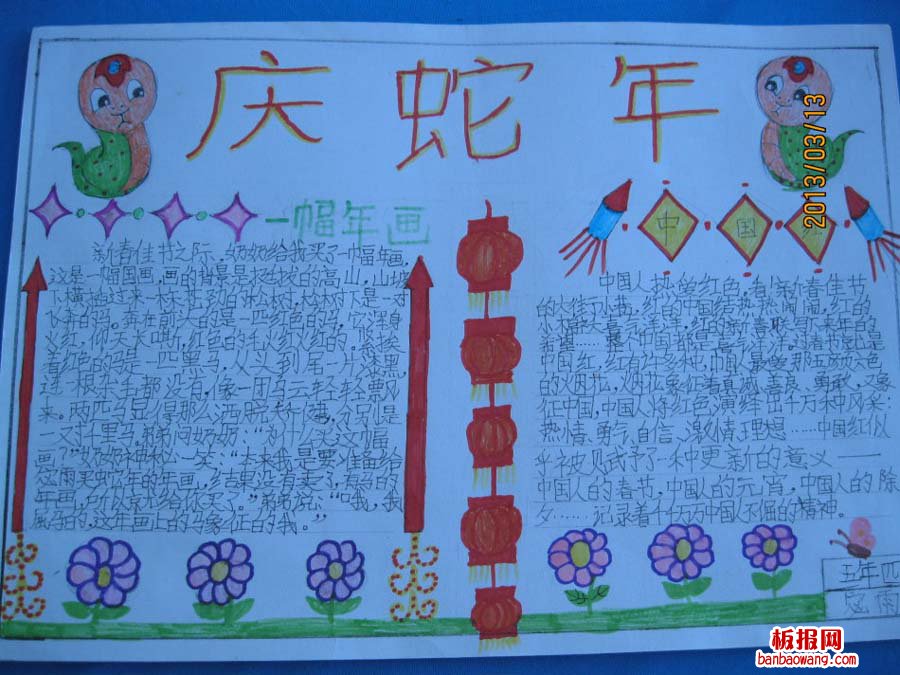 庆蛇年
2013/03/13
一幅年画
新春佳节之际,奶奶给我买了一幅年画,
这是一幅国画,画的背景是
下横插过来一株 的松树,松树下是一对
奔在前头的是一匹红色的马,它浑身
火红,仰天 ,红色的毛似火红火红的。紧接
着红色的马是一匹黑马,从头到尾一片漆黑,
连一根杂毛都没有,像一团乌云轻轻飘
来。两匹马显得那么洒脱矫健,
一对千里马。弟弟问奶奶:“为什么买这幅
画?”奶奶神秘一笑,“本来我是要准备给
雨买蛇年的年画,结果没有卖了,有马的
年画,所以就给你买了。”弟弟说:“哦,我
属马的,这年画上的马象征的我。”
中国红
中国人热爱红色,看,新春佳节
的火街小巷,红的中国结热热闹闹,红的
小灯笼 ,红的新春联写下来年的
希望……整个中国都是喜气洋洋。过春节就是
中国红,红有许多种,而人最爱那五颜六色
的烟花,烟花象征着真诚,善良,勇敢,又象
征中国,中国人将红色演绎出千万种风采:
热情、勇气、自信、激情、理想……中国红似
乎被赋予了一种更新的意义——
中国人的春节,中国人的元宵,中国人的除
夕……记录着千千万万中国人不屈的精神。
五年四
寇雨
板报网
banbaowang.com